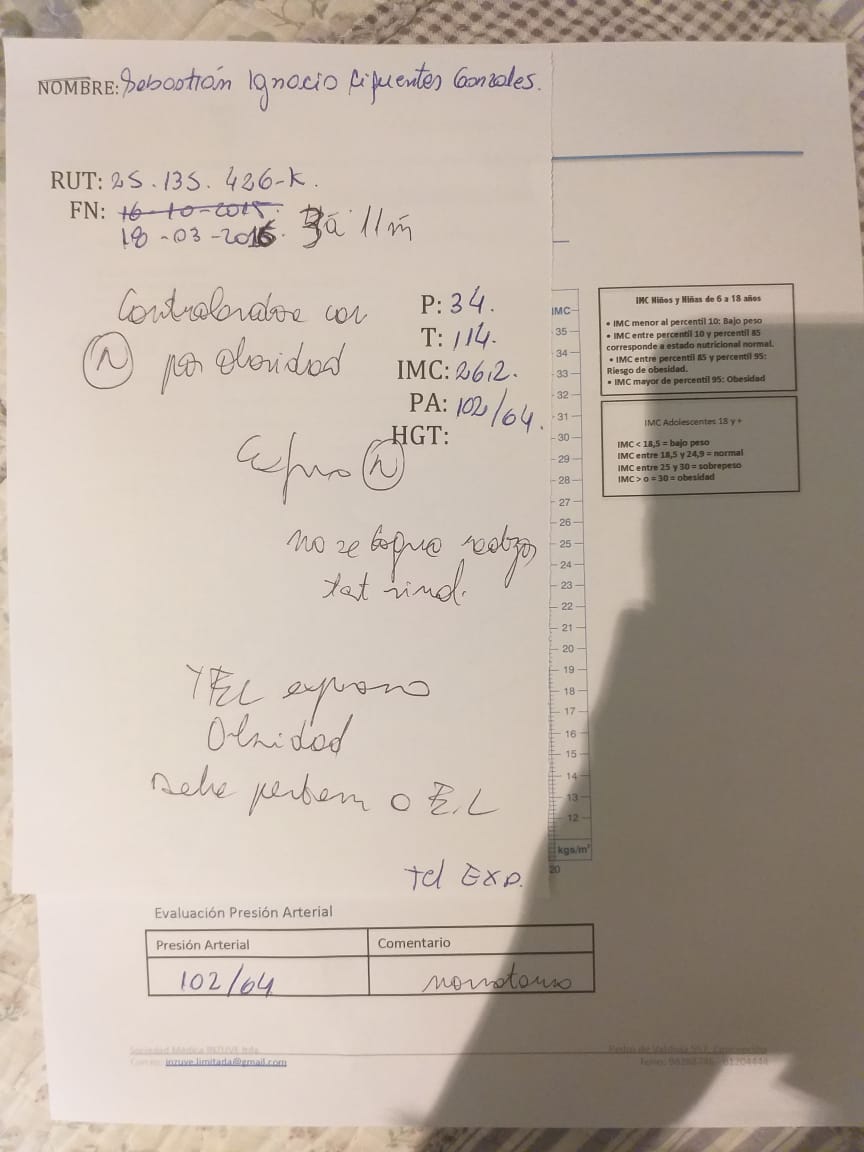 NOMBRE: Sebastián Ignacio Cifuentes Gonzales.
RUT: 25.135.426-K.
FN: 16-10-2015.
18-03-2016. 3a 11m
Controlandose con
N por obesidad
P: 34.
T: 114.
IMC: 26,2.
PA: 102/64.
HGT:
N
no se logra realizar
test
TEL
Obesidad
Debe
Tel Exp.
IMC
35
34
33
32
31
30
29
28
27
26
25
24
23
22
21
20
19
18
17
16
15
14
13
12
kgs/m²
20
IMC Niños y Niñas de 6 a 18 años
• IMC menor al percentil 10: Bajo peso
• IMC entre percentil 10 y percentil 85
corresponde a estado nutricional normal.
• IMC entre percentil 85 y percentil 95:
Riesgo de obesidad.
• IMC mayor de percentil 95: Obesidad
IMC Adolescentes 18 y +
IMC < 18,5 = bajo peso
IMC entre 18,5 y 24,9 = normal
IMC entre 25 y 30 = sobrepeso
IMC > o = 30 = obesidad
Evaluación Presión Arterial
Presión Arterial
Comentario
102/64
normotenso
Sociedad Médica INZUVE ltda
Correo: inzuve.limitada@gmail.com
Pedro de Valdivia Concepción